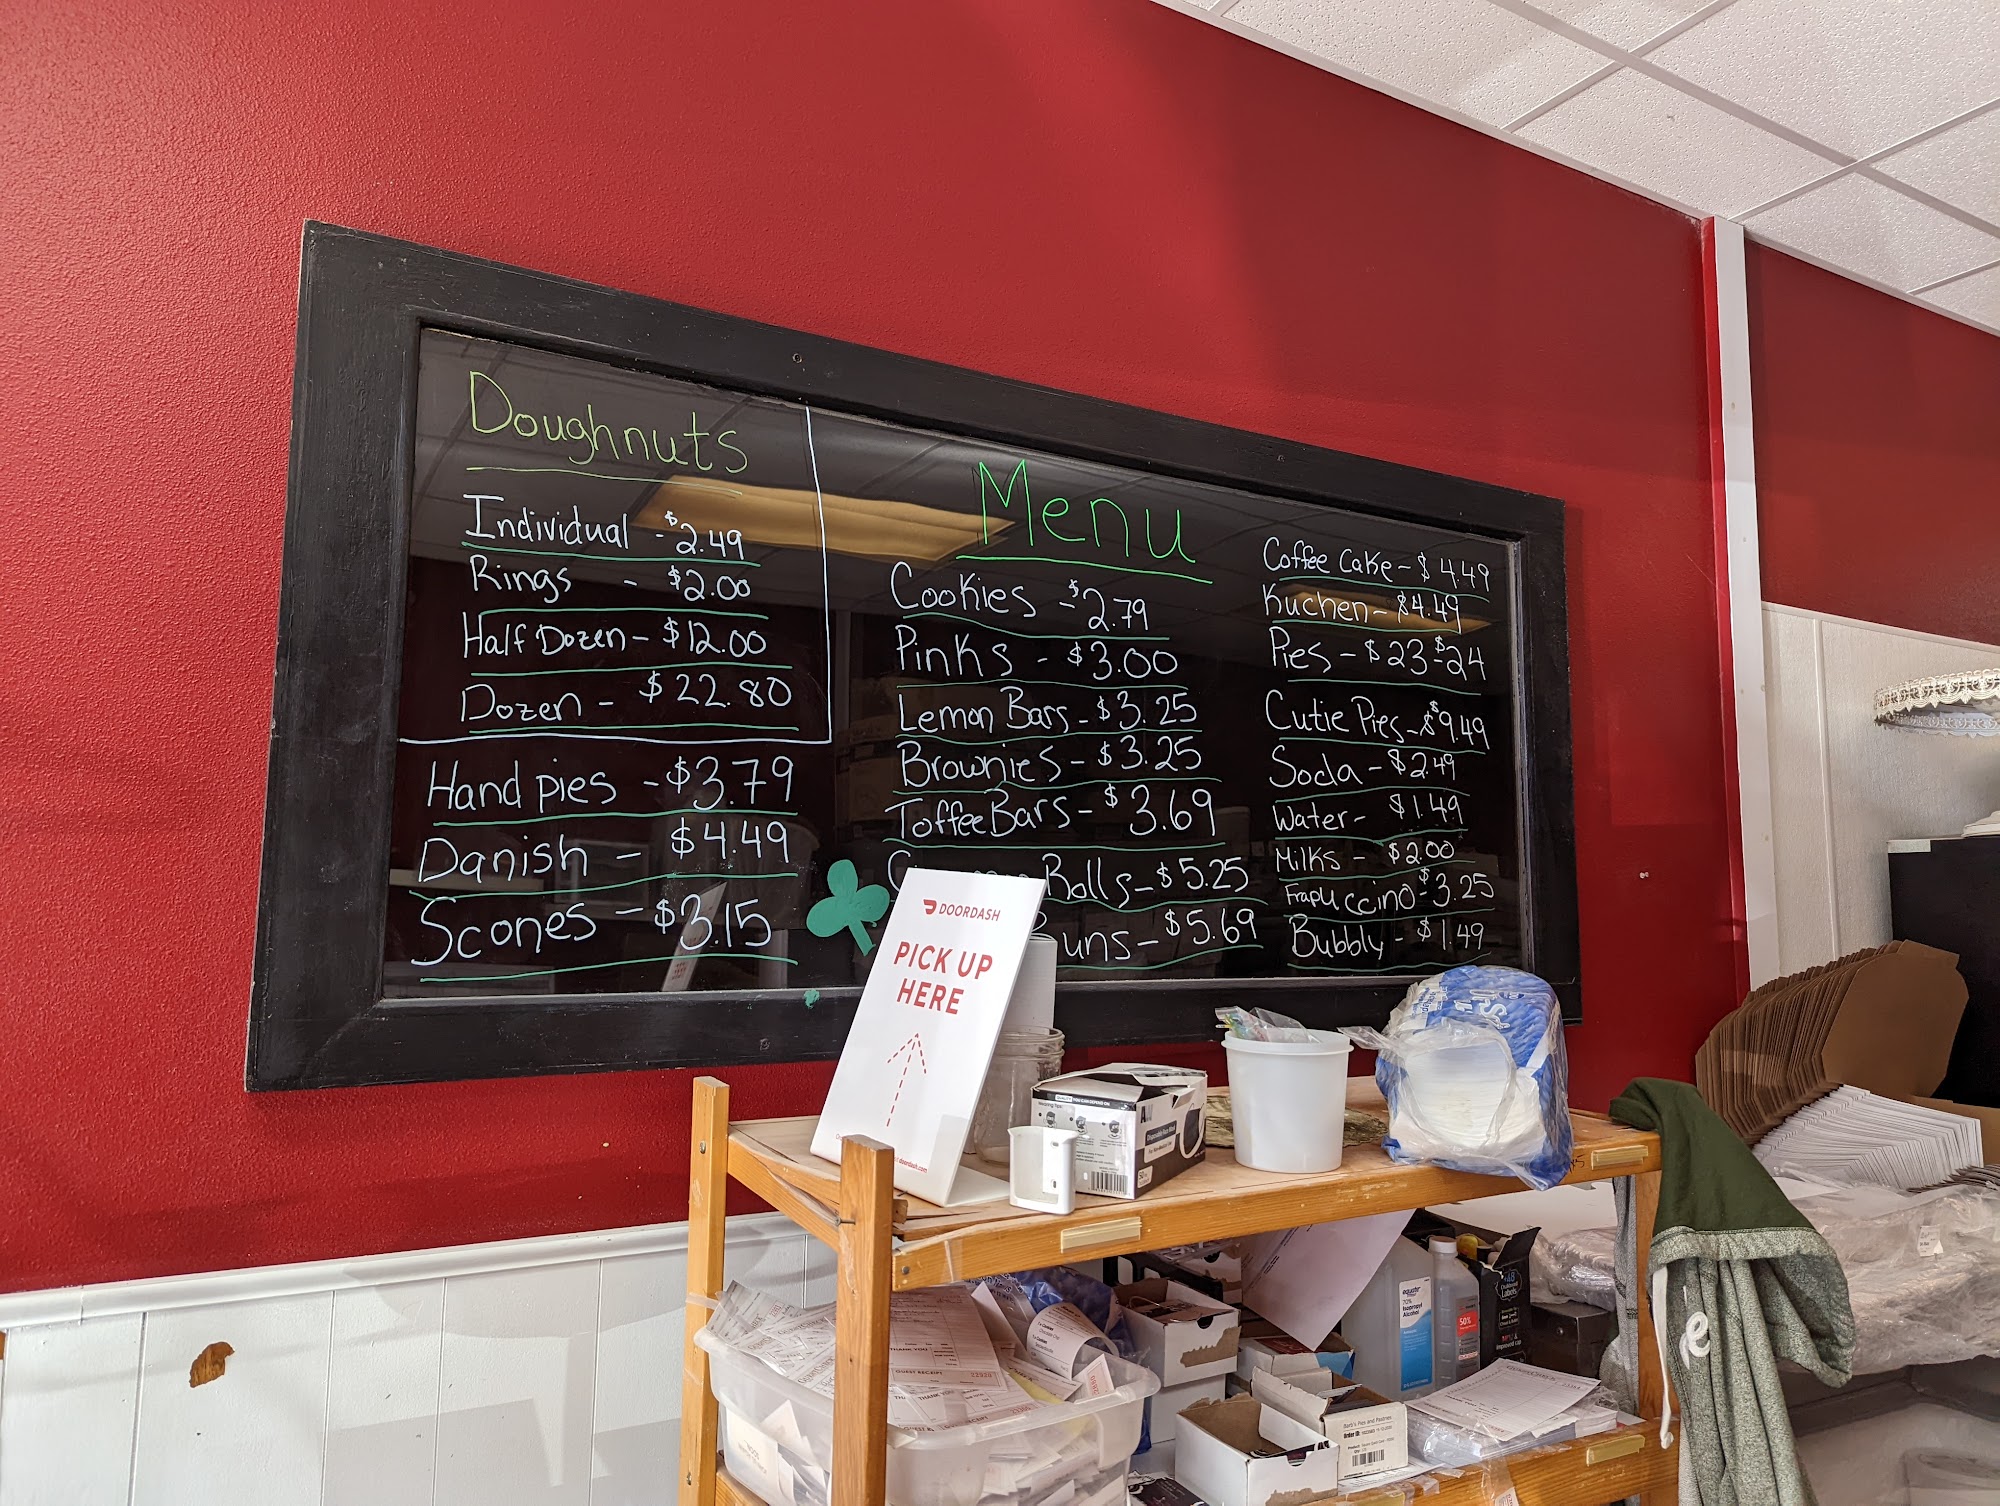 Doughnuts
Individual - $2.49
Rings - $2.00
Half Dozen - $12.00
Dozen - $22.80
Hand pies - $3.79
Danish - $4.49
Scones - $3.15
Menu
Cookies - $2.79
Pinks - $3.00
Lemon Bars - $3.25
Brownies - $3.25
Toffee Bars - $3.69
Rolls - $5.25
uns - $5.69
Coffee Cake - $4.49
Kuchen - $4.49
Pies - $23-$24
Cutie Pies - $9.49
Soda - $2.49
Water - $1.49
Milks - $2.00
Frapuccino - $3.25
Bubbly - $1.49
DOORDASH
PICK UP
HERE
doordash.com
equate
70%
Isopropyl
Alcohol
50%
Barb's Pies and Pastries
Order ID:
THANK YOU
GUEST RECEIPT